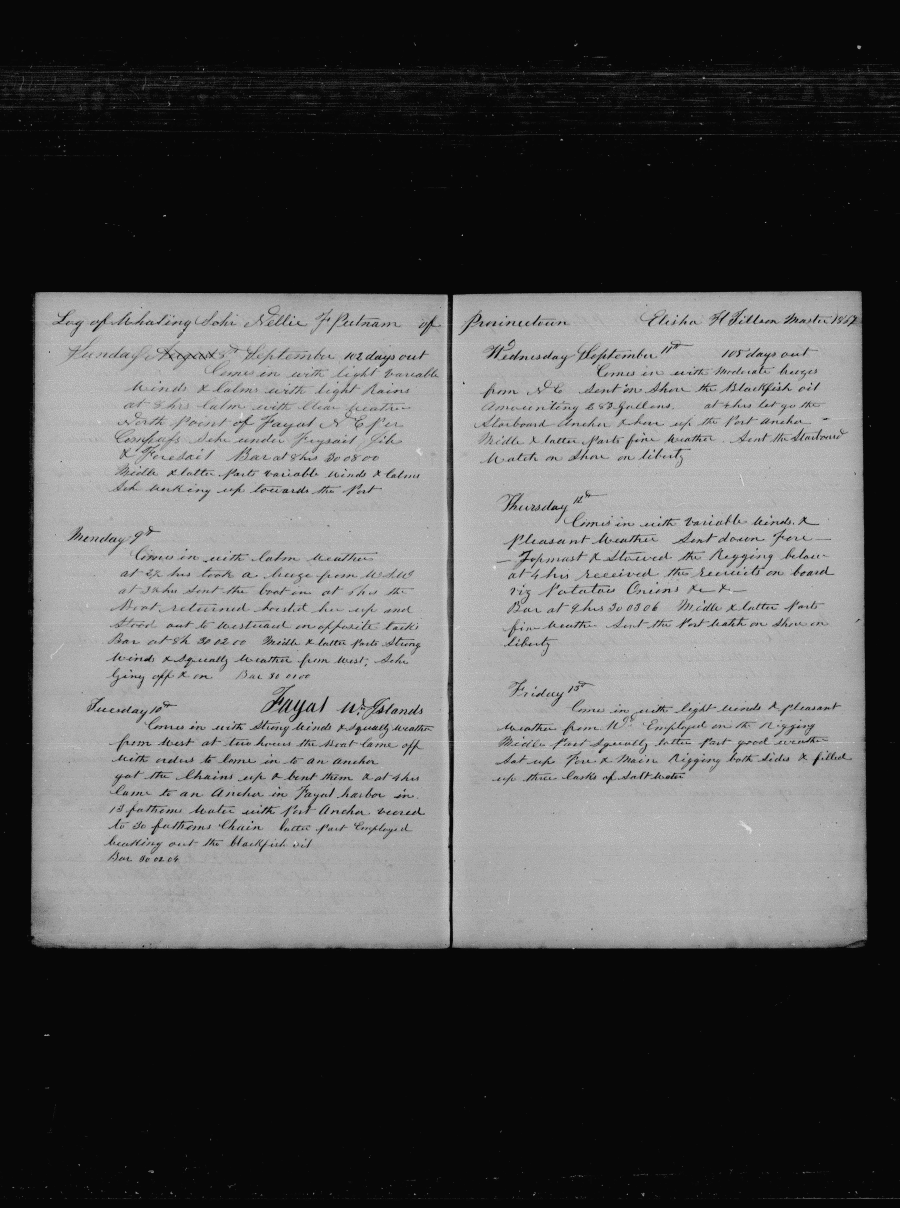 Log of Whaling Schr Nellie F Putnam of
Sunday August 8th September 102 days out
Comes in with light variable
winds & Calms with light Rains
at 8 hrs Calm with Clear weather
North Point of Fayal N E Per
Compass Schr under Frysail Jib
& Foresail Bar at 8 hrs 30 08 00
Middle & latter Parts variable winds & Calms
Sch working up towards the Port
Monday 9th
Comes in with Calm weather
at 2½ hrs took a breeze from W.S.W
at hrs Sent the boat on at hrs the
Boat returned hoisted her up and
Stood out to westward on opposite tacks
Bar at 8h 30 02 00 Midle & latter Parts Strong
winds & Squally weather from West, Schr
lying off & on Bar 30 01 00
Tuesday 10th Fayal Wn Islands
Comes in with Strong winds & Squally weather
from West at two hours the Boat Came off
with orders to Come in to an anchor
got the Chains up & bent them & at 4 hrs
Came to an Anchor in Fayal harbor in
13 fathoms water with Port Anchor veered
to 30 fathoms Chain latter Part Employed
breaking out the blackfish oil
Bar 30 02 04
Provincetown Elisha H Tillson Master 1867
Wednesday September 11th 105 days out
Comes in with moderate breezes
from N E Sent on Shore the Blackfish oil
Amounting 283 Gallons. at 4 hrs let go the
Starboard Anchor & hove up the Port Anchor
Midle & latter Parts fine weather. Sent the Starboard
Watch on Shore on liberty
Thursday 12th
Comes in with variable winds &
Pleasant weather Sent down Fore
Topmast & Stowed the Rigging below
at 4 hrs received the recruits on board
viz Potatoes Onions &c &c
Bar at 9 hrs 30 03 06 Midle & latter Parts
fine weather Sent the Port Watch on Shore on
liberty
Friday 13th
Comes in with light winds & pleasant
weather from Wd Employed on the Rigging
Middle Part Squally latter Part good weather
Sat up Fore & Main Rigging both Sides & filled
up three Casks of Salt water